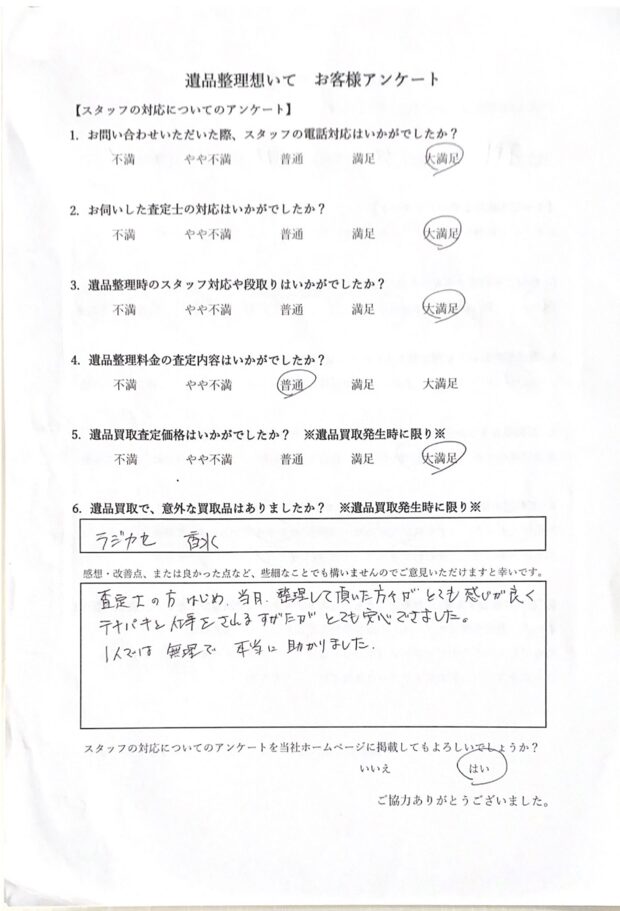 遺品整理想いて　お客様アンケート
【スタッフの対応についてのアンケート】
1. お問い合わせいただいた際、スタッフの電話対応はいかがでしたか？
不満　やや不満　普通　満足　大満足
2. お伺いした査定士の対応はいかがでしたか？
不満　やや不満　普通　満足　大満足
3. 遺品整理時のスタッフ対応や段取りはいかがでしたか？
不満　やや不満　普通　満足　大満足
4. 遺品整理料金の査定内容はいかがでしたか？
不満　やや不満　普通　満足　大満足
5. 遺品買取査定価格はいかがでしたか？　※遺品買取発生時に限り※
不満　やや不満　普通　満足　大満足
6. 遺品買取で、意外な買取品はありましたか？　※遺品買取発生時に限り※
ラジカセ　香水
感想・改善点、または良かった点など、些細なことでも構いませんのでご意見いただけますと幸いです。
査定士の方はじめ、当日、整理して頂いた方々がとても感じが良く
テキパキと仕事をされるすがたがとても安心できました。
1人では無理で　本当に助かりました.
スタッフの対応についてのアンケートを当社ホームページに掲載してもよろしいでしょうか？
いいえ　はい
ご協力ありがとうございました。